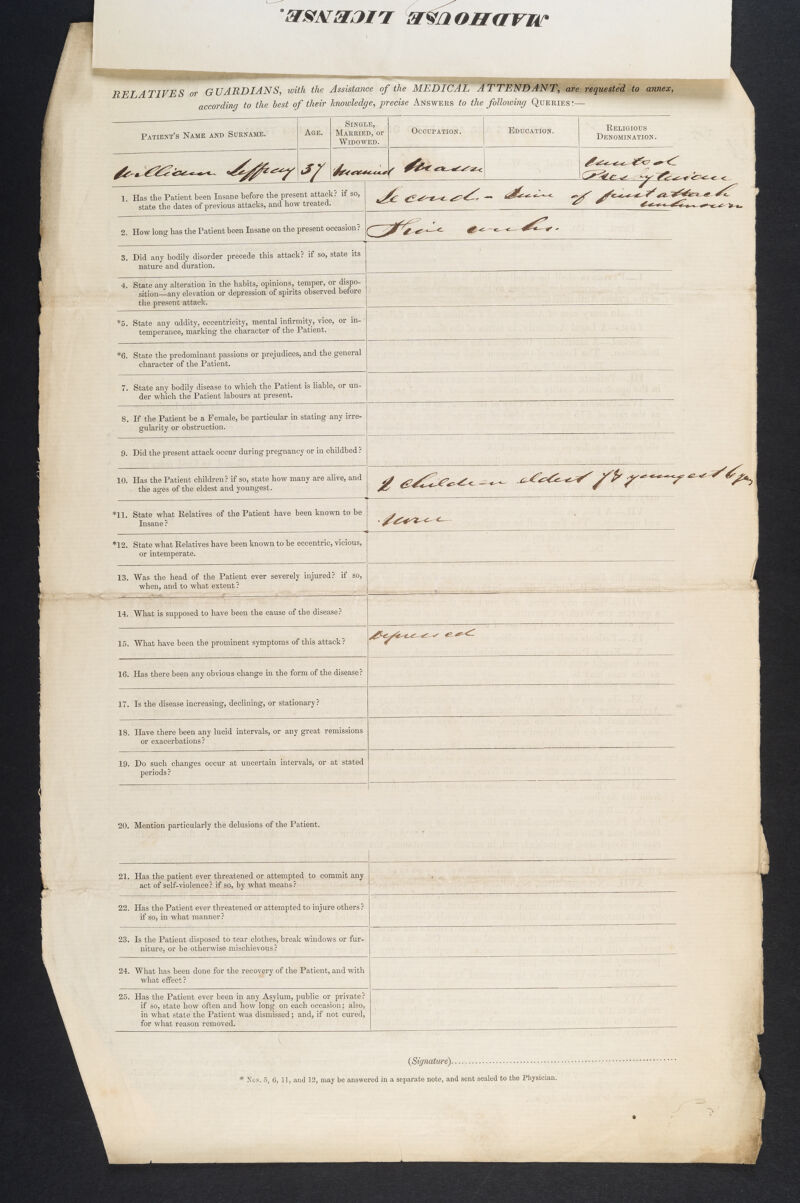 MADHOUSE LICENSE.
RELATIVES or GUARDIANS, with the Assistance of the MEDICAL ATTENDANT, are requested to annex,
according to the best of their knowledge, precise ANSWERS to the following QUERIES:—
PATIENT'S NAME AND SURNAME. AGE. SINGLE, MARRIED, OR WIDOWED. OCCUPATION. EDUCATION. RELIGIOUS DENOMINATION.
William Jeffray 37 Married Mason United
Presbyterian
1. Has the Patient been Insane before the present attack? if so,
state the dates of previous attacks, and how treated.
Second - of first attack
unknown
2. How long has the Patient been Insane on the present occasion?
Five weeks.
3. Did any bodily disorder precede this attack? if so, state its
nature and duration.
4. State any alteration in the habits, opinions, temper, or dispo-
sition—any elevation or depression of spirits observed before
the present attack.
*5. State any oddity, eccentricity, mental infirmity, vice, or in-
temperance, marking the character of the Patient.
*6. State the predominant passions or prejudices, and the general
character of the Patient.
7. State any bodily disease to which the Patient is liable, or un-
der which the Patient labours at present.
8. If the Patient be a Female, be particular in stating any irre-
gularity or obstruction.
9. Did the present attack occur during pregnancy or in childbed?
10. Has the Patient children? if so, state how many are alive, and
the ages of the eldest and youngest.
2 children eldest youngest
*11. State what Relatives of the Patient have been known to be
Insane?
None
*12. State what Relatives have been known to be eccentric, vicious,
or intemperate.
13. Was the head of the Patient ever severely injured? if so,
when, and to what extent?
14. What is supposed to have been the cause of the disease?
15. What have been the prominent symptoms of this attack?
Depressed
16. Has there been any obvious change in the form of the disease?
17. Is the disease increasing, declining, or stationary?
18. Have there been any lucid intervals, or any great remissions
or exacerbations?
19. Do such changes occur at uncertain intervals, or at stated
periods?
20. Mention particularly the delusions of the Patient.
21. Has the patient ever threatened or attempted to commit any
act of self-violence? if so, by what means?
22. Has the Patient ever threatened or attempted to injure others?
if so, in what manner?
23. Is the Patient disposed to tear clothes, break windows or fur-
niture, or be otherwise mischievous?
24. What has been done for the recovery of the Patient, and with
what effect?
25. Has the Patient ever been in any Asylum, public or private?
if so, state how often and how long on each occasion; also,
in what state the Patient was dismissed; and, if not cured,
for what reason removed.
(Signature)
* Nos. 5, 6, 11, and 12, may be answered in a separate note, and sent sealed to the Physician.